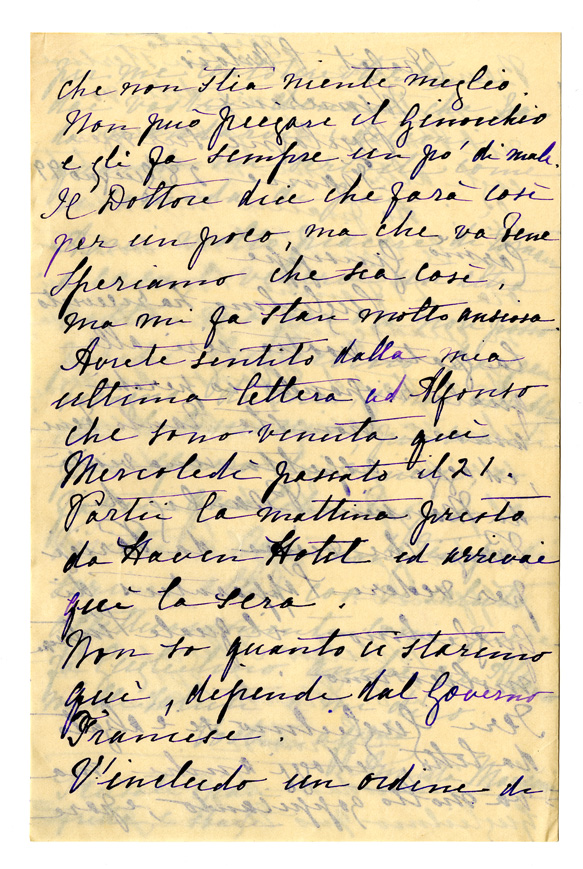 che non stia niente meglio.
Non può piegare il Ginocchio
e gli fa sempre un po' di male.
Il Dottore dice che farà così
per un poco, ma che va bene
Speriamo che sia così,
ma mi fa stare molto ansiosa.
Avrete sentito dalla mia
ultima lettera ad Alfonso
che sono venuta quì
Mercoledì passato il 21.
Partii la mattina presto
da Haven Hotel ed arrivai
quì la sera.
Non so quanto ci staremo
quì, dipende dal Governo
Francese.
V'includo un ordine di